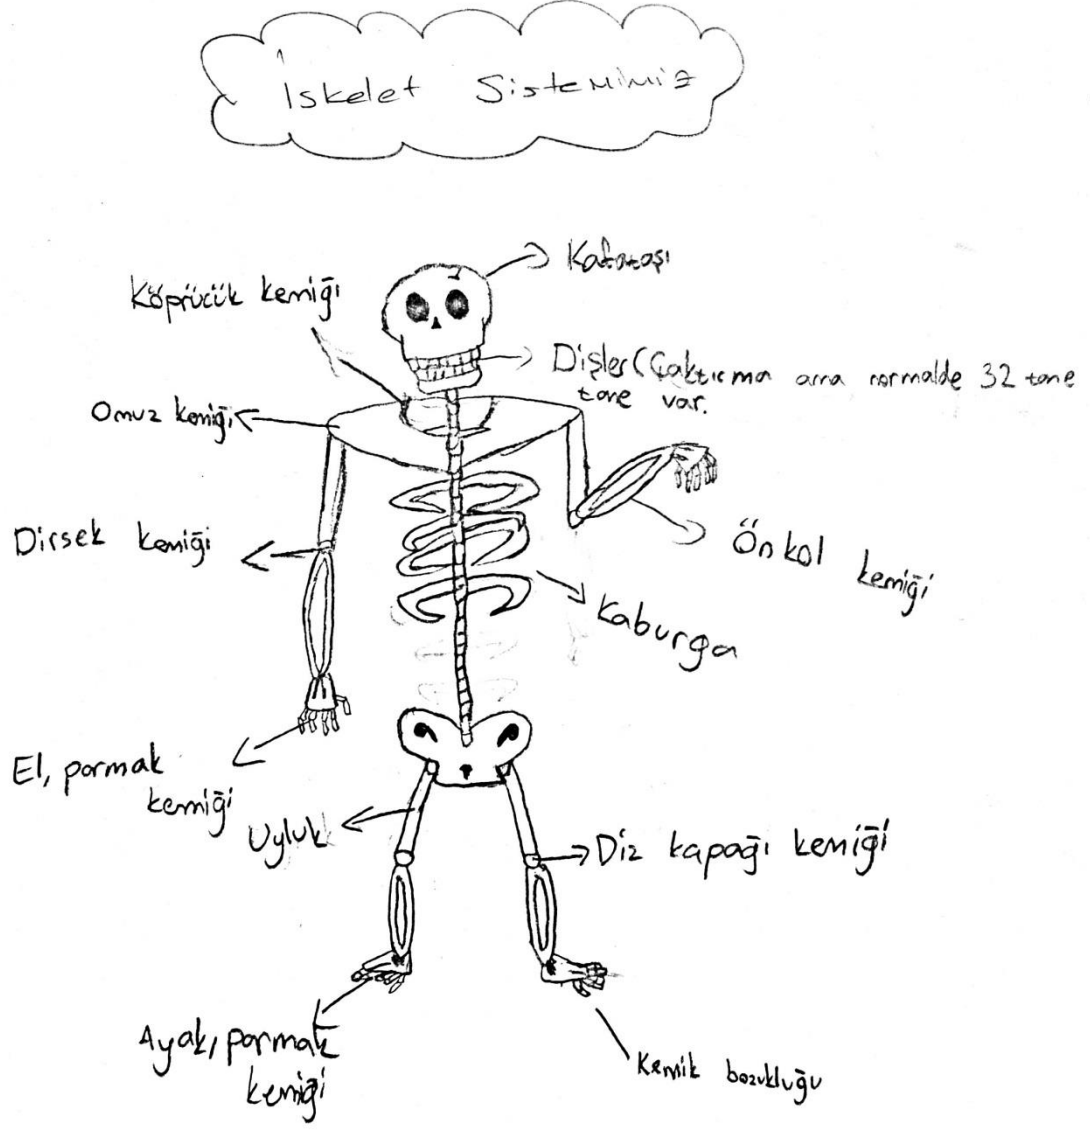 İskelet Sistemimiz
Kafatası
Köprücük kemiği
Dişler (Çaktırma ama normalde 32 tane
tane var.
Omuz kemiği
Dirsek kemiği
Önkol kemiği
Kaburga
El, parmak
kemiği
Uyluk
Diz kapağı kemiği
Ayak, parmak
kemiği
Kemik bozukluğu